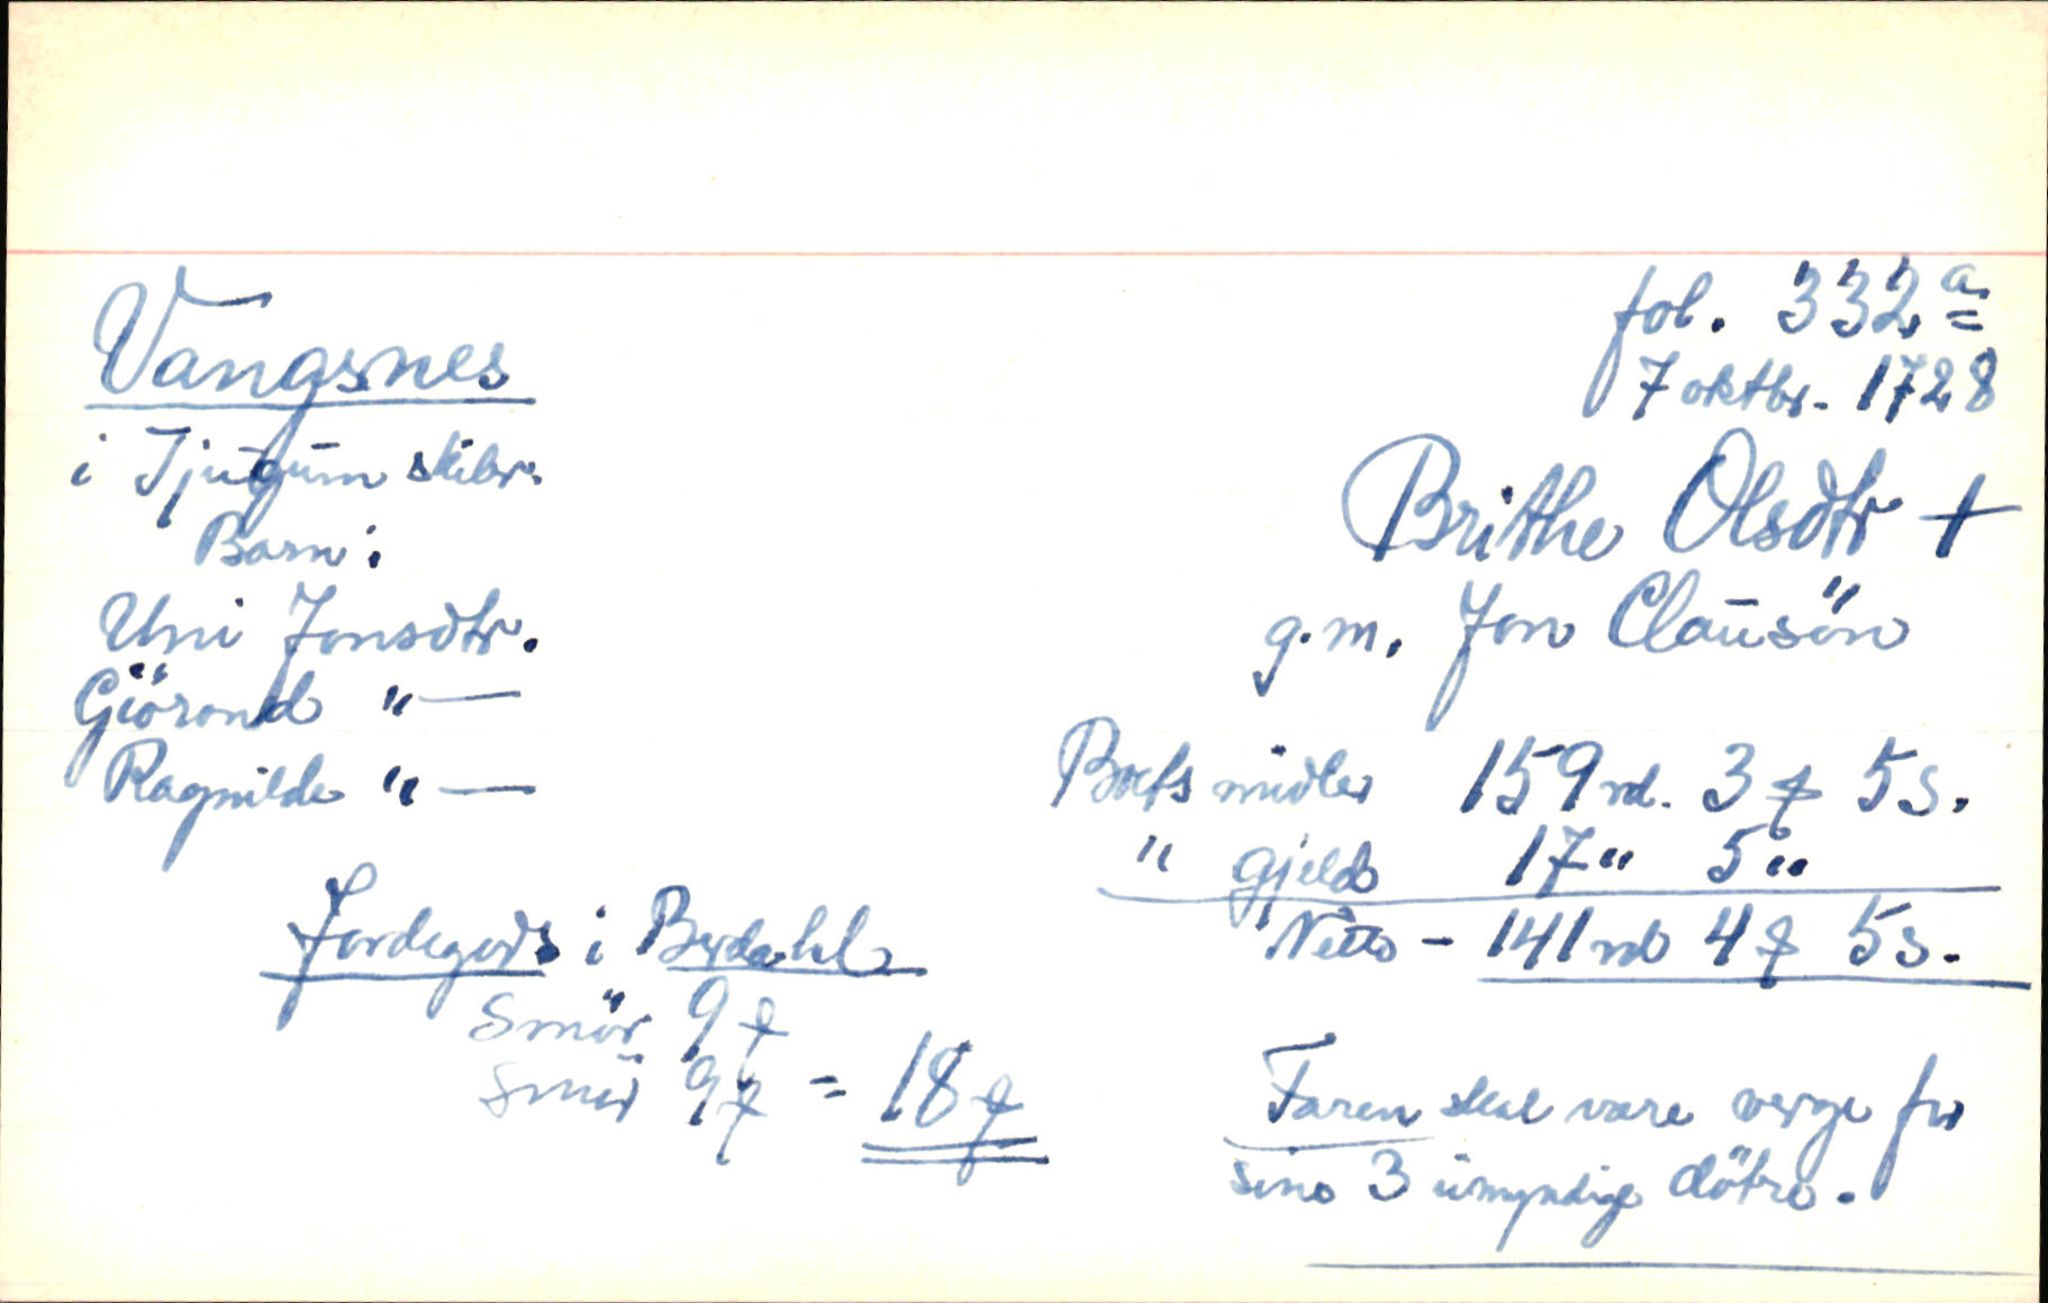 Vangsnes
i Tjugum skibr.
Barn:
Uni Jonsdtr.
Giörond "—
Ragnilde "—
Jordegods i Berdahl
Smör 9
Smör 9 = 18
fol. 332 a
7 oktbr. 1728
Brithe Olsdtr +
g.m. Jon Clausön
Boets midler 159 rd. 3 5 s.
" gjeld 17 " 5 "
Netto - 141 rd 4 5 s.
Faren skal være verge for
sine 3 umyndige dötre.